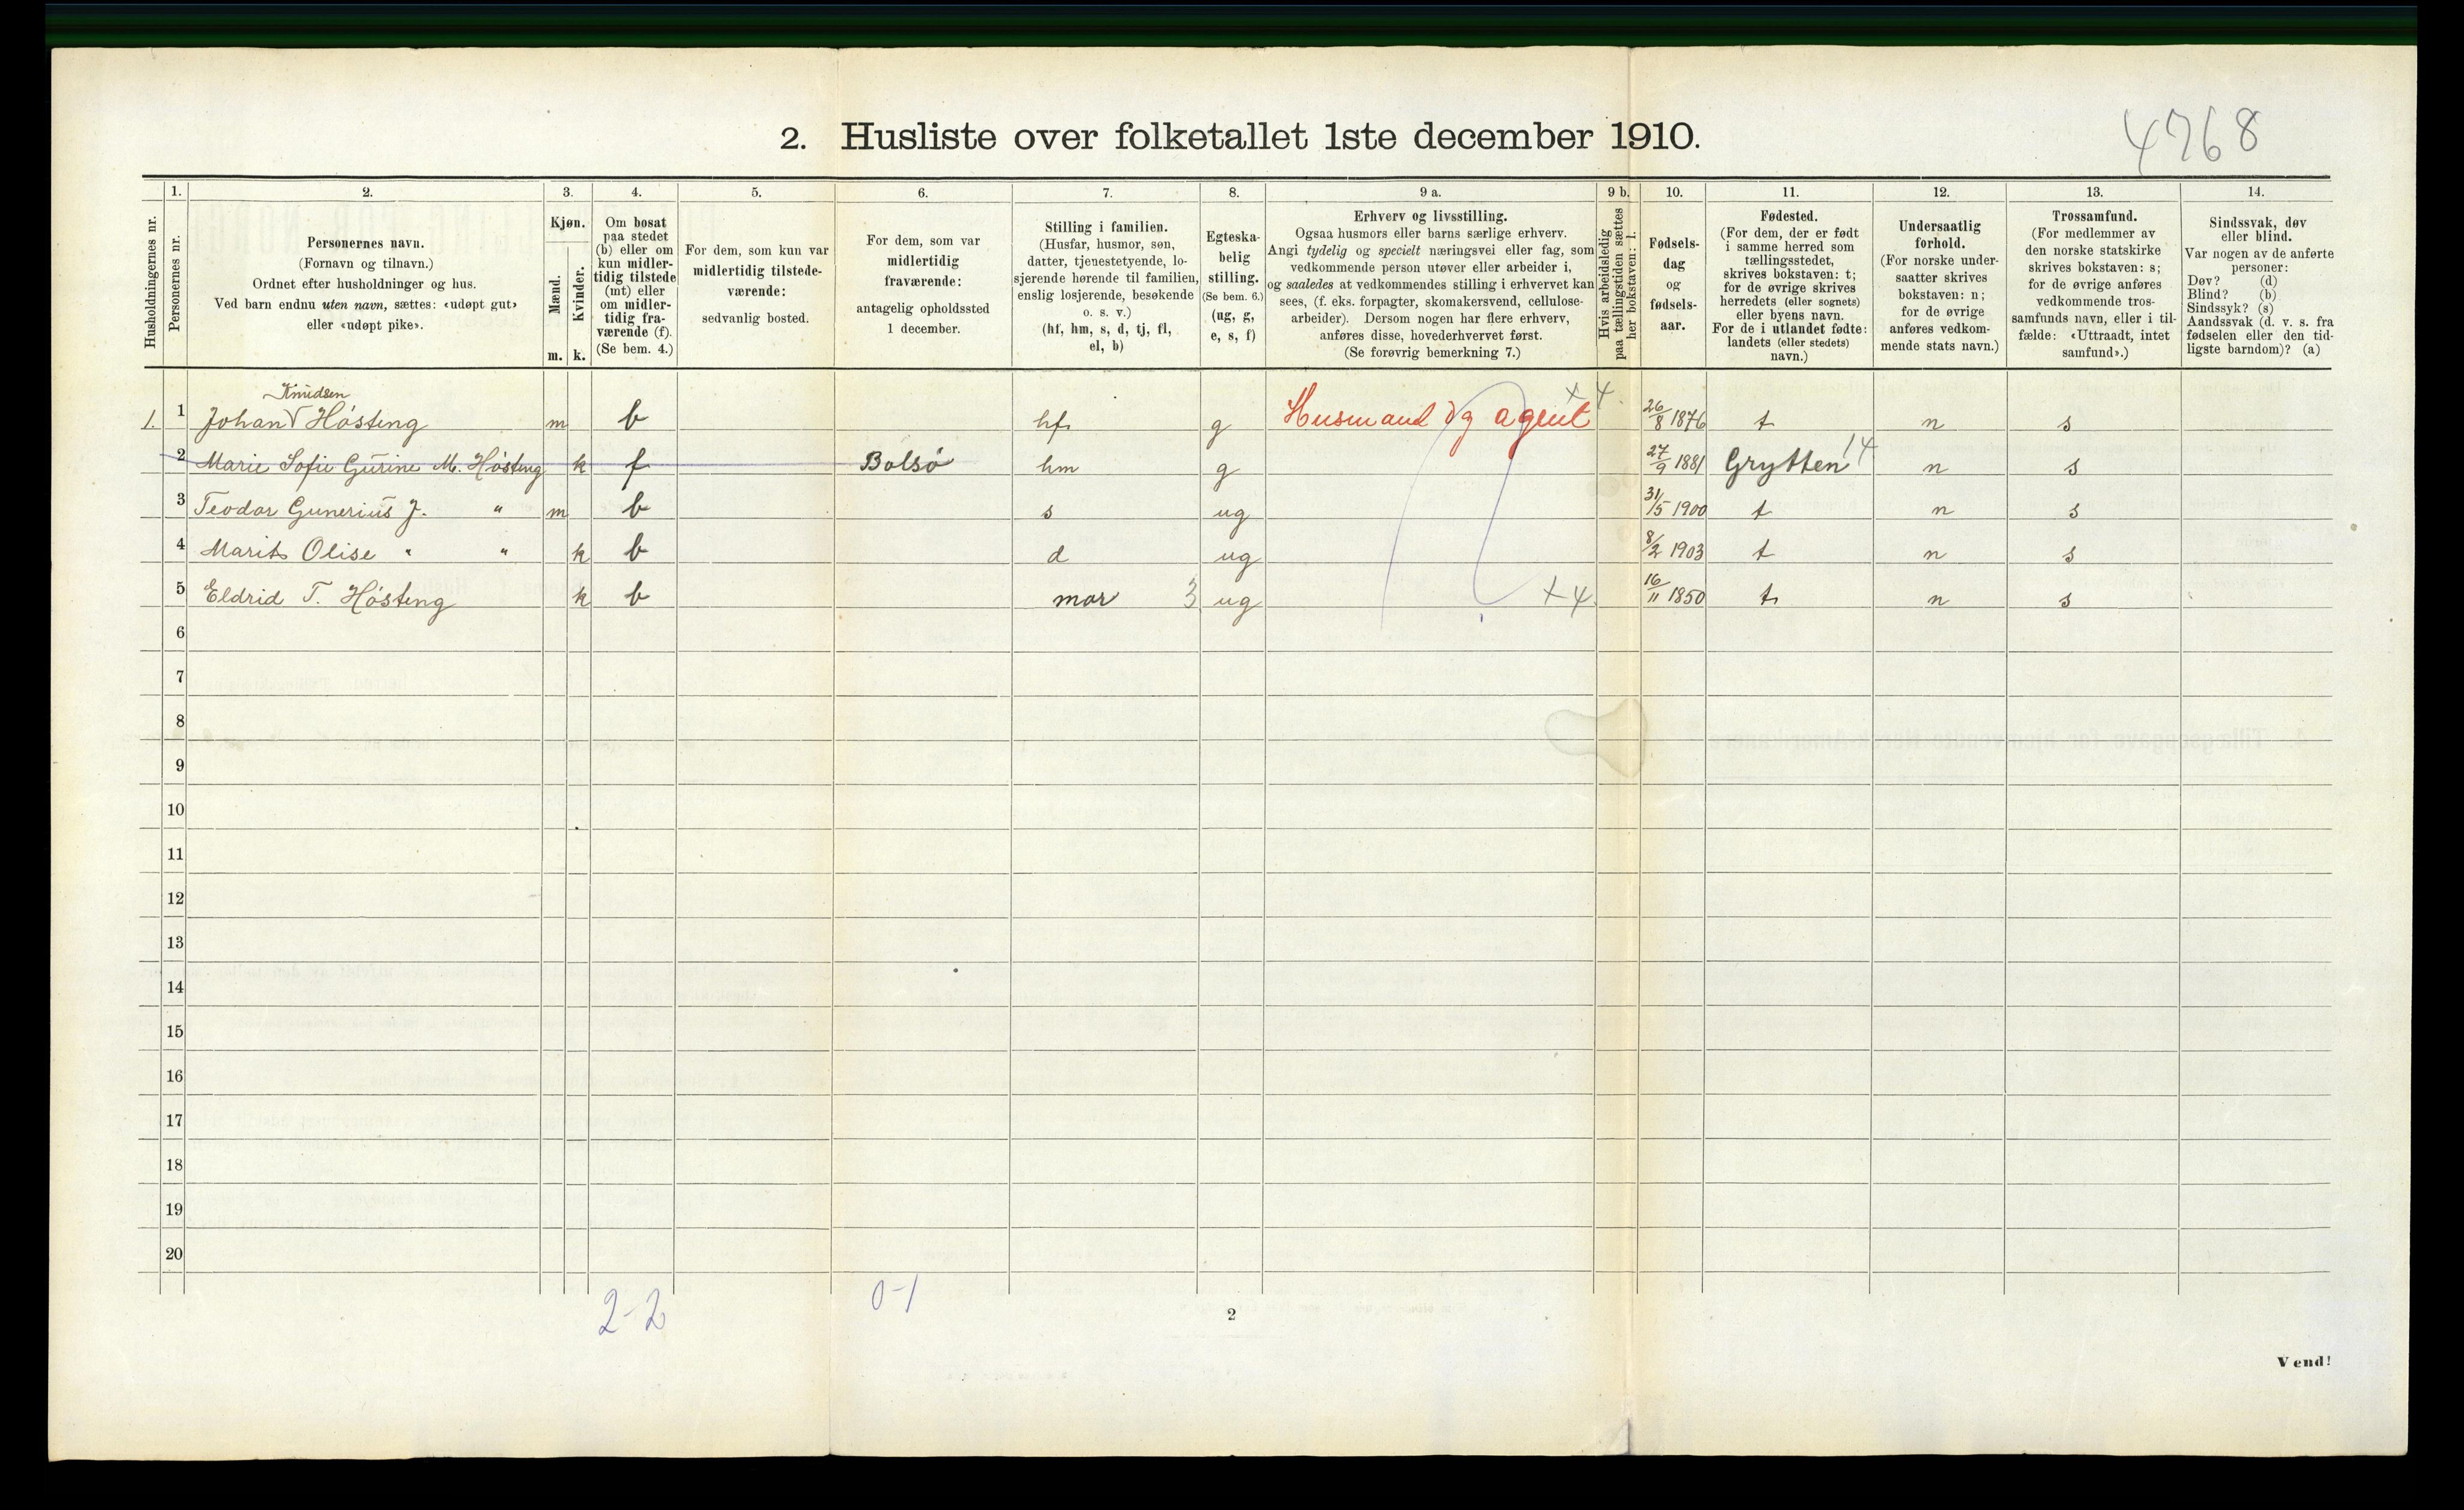 4768
2. Husliste over folketallet 1ste december 1910.
Husholdningernes nr.
1. Personernes nr.
2. Personernes navn.
(Fornavn og tilnavn.)
Ordnet efter husholdninger og hus.
Ved barn endnu uten navn, sættes: «udøpt gut»
eller «udøpt pike».
3. Kjøn.
Mænd. Kvinder.
m. k.
4. Om bosat
paa stedet
(b) eller om
kun midler-
tidig tilstede
(mt) eller
om midler-
tidig fra-
værende (f).
(Se bem. 4.)
5. For dem, som kun var
midlertidig tilstede-
værende:
sedvanlig bosted.
6. For dem, som var
midlertidig
fraværende:
antagelig opholdssted
1 december.
7. Stilling i familien.
(Husfar, husmor, søn,
datter, tjenestetyende, lo-
sjerende hørende til familien,
enslig losjerende, besøkende
o. s. v.)
(hf, hm, s, d, tj, fl,
el, b)
8. Egteska-
belig
stilling.
(Se bem. 6.)
(ug, g,
e, s, f)
9 a. Erhverv og livsstilling.
Ogsaa husmors eller barns særlige erhverv.
Angi tydelig og specielt næringsvei eller fag, som
vedkommende person utøver eller arbeider i,
og saaledes at vedkommendes stilling i erhvervet kan
sees, (f. eks. forpagter, skomakersvend, cellulose-
arbeider). Dersom nogen har flere erhverv,
anføres disse, hovederhvervet først.
(Se forøvrig bemerkning 7.)
9 b. Hvis arbeidsledig
paa tællingstiden sættes
her bokstaven: l.
10. Fødsels-
dag
og
fødsels-
aar.
11. Fødested.
(For dem, der er født
i samme herred som
tællingsstedet,
skrives bokstaven: t;
for de øvrige skrives
herredets (eller sognets)
eller byens navn.
For de i utlandet fødte:
landets (eller stedets)
navn.)
12. Undersaatlig
forhold.
(For norske under-
saatter skrives
bokstaven: n;
for de øvrige
anføres vedkom-
mende stats navn.)
13. Trossamfund.
(For medlemmer av
den norske statskirke
skrives bokstaven: s;
for de øvrige anføres
vedkommende tros-
samfunds navn, eller i til-
fælde: «Uttraadt, intet
samfund».)
14. Sindssvak, døv
eller blind.
Var nogen av de anførte
personer:
Døv? (d)
Blind? (b)
Sindssyk? (s)
Aandssvak (d. v. s. fra
fødselen eller den tid-
ligste barndom)? (a)
Knudsen
1. 1 Johan V Hósteng m b hf g Husmand og agent x 4. 26/8 1876 t n s
2 Marie Sofie Gŭrine M. Hósteng k f Bolsó hm g 27/9 1881 Grytten 14 n s
3 Teodor Gunerius J. " m b s ug 31/5 1900 t n s
4 Marits Olise " " k b d ug 8/2 1903 t n s
5 Eldrid T. Hósteng k b mor 3 ug x 4. 16/11 1850 t n s
6
7
8
9
10
11
12
13
14
15
16
17
18
19
20
2-2 0-1
2
Vend!